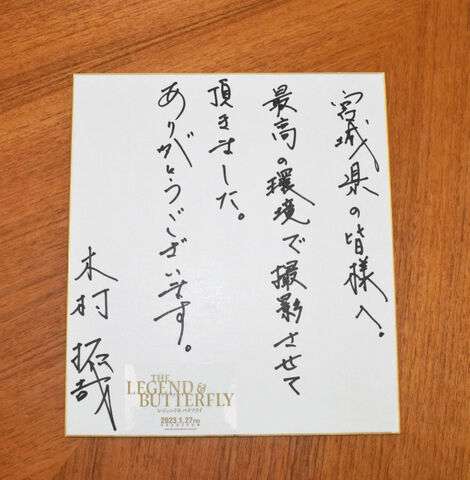 宮城県の皆様へ。
最高の環境で撮影させて
頂きました。
ありがとうございます。
木村 拓哉
THE
LEGEND &
BUTTERFLY
レジェンド&バタフライ
2023.1.27 FRI